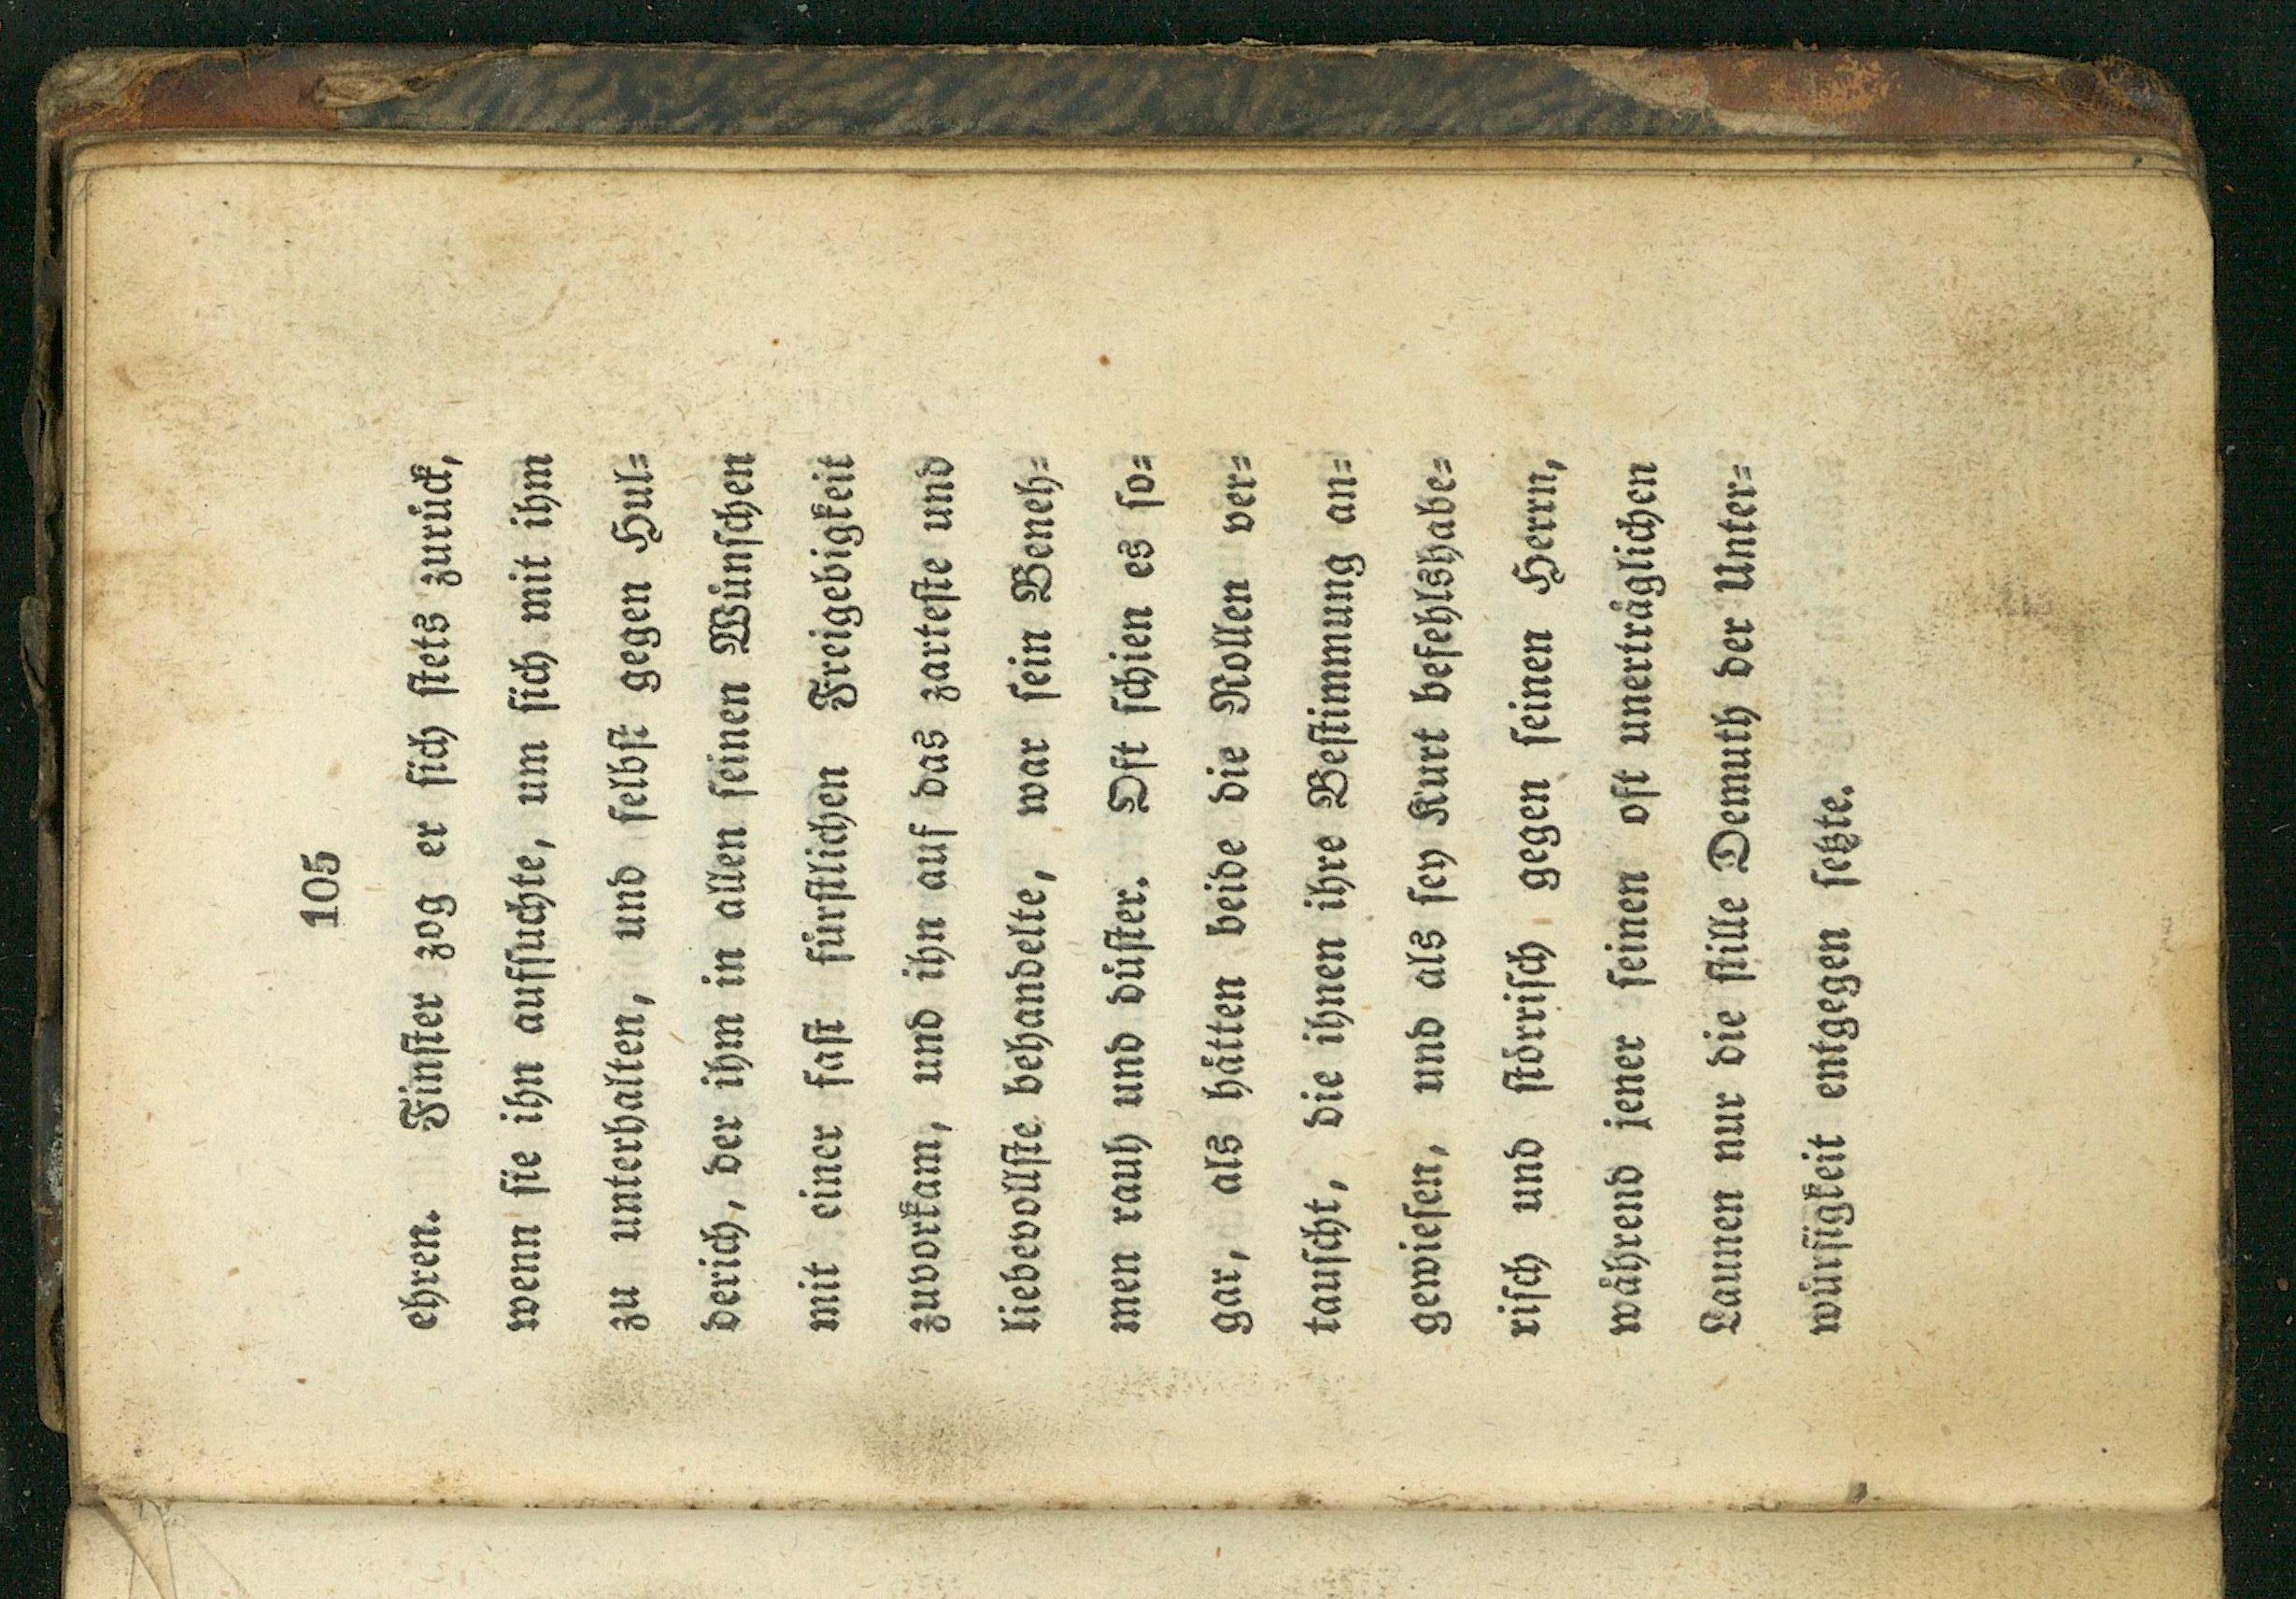 105
ehren. Finſter zog er ſich ſtets zurück,
wenn ſie ihn aufſuchte, um ſich mit ihm
zu unterhalten, und ſelbſt gegen Hul=
derich, der ihm in allen ſeinen Wünſchen
mit einer faſt fürſtlichen Freigebigkeit
zuvorkam, und ihn auf das zarteſte und
liebevollſte behandelte, war ſein Beneh=
men rauh und düſter. Oft ſchien es ſo=
gar, als hätten beide die Rollen ver=
tauſcht, die ihnen ihre Beſtimmung an=
gewieſen, und als ſey Kurt befehlshabe=
riſch und ſtörriſch gegen ſeinen Herrn,
während jener ſeinen oft unerträglichen
Launen nur die ſtille Demuth der Unter=
würfigkeit entgegen ſetzte.